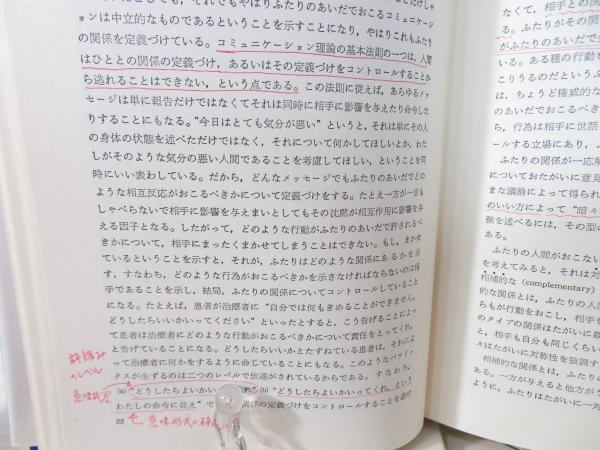 としても、それでもやはりふたりのあいだでおこるコミュニケーシ
ョンは中立的なものであるということを示すことになり、やはりこれもふたり
の関係を定義づけている。コミュニケーション理論の基本法則の一つは、人間
はひととの関係の定義づけ、あるいはその定義づけをコントロールすることか
ら逃れることはできない、という点である。この法則に従えば、あらゆるメッ
セージは単に報告だけではなくてそれは同時に相手に影響を与えたり命令した
りすることにもなる。“今日はとても気分が悪い”というと、それは単にその人
の身体の状態を述べただけではなく、それについて何かしてほしいとか、わた
しがそのような気分の悪い人間であることを考慮してほしい、ということを同
時にいい表わしている。だから、どんなメッセージでもふたりのあいだでどの
ような相互反応がおこるべきかについて定義づけをする。たとえ一方が一言も
しゃべらないで相手に影響を与えまいとしてもその沈黙が相互作用に影響を与
える因子となる。したがって、どのような行動がふたりのあいだで許されるべ
きかについて、相手にまったくまかせてしまうことはできない。もし、まかせ
ているということを示すと、それが、ふたりはどのような関係にあるかを示
す。すなわち、どのような行為がおこるべきかを示さなければならないのは相
手であることを示し、結局、ふたりの関係についてコントロールしていること
になる。たとえば、患者が治療者に“自分では何もきめることができません。
どうしたらいいかいってください”といったとすると、こう告げることによっ
て患者は治療者にどのような行動がおこるべきかについて責任をとってくれ、
と告げていることになる。どうしたらいいかとたずねている患者は、それによ
って治療者に何かをするように命じていることにもなる。このようなパラドッ
クスが生ずるのは二つのレベルで伝達がされているからである。すなわち、
(a)“どうしたらよいかいってくれ” (b)“どうしたらよいかいってくれ、という
わたしの命令に従え”で 関係の定義づけをコントロールすることを避け
22
枠組み
のレベル
意味内容
意味形式=枠
なくて、相手との関
る。ふたりがその関
がふたりのあいだで
いる。ある種の行動を
こりうるのだというふ
は、ちょうど権威的な
のあいだでおこるべき
ら、行為は相手に世話
ールする立場にあり、ふ
ふたりの関係が一応解
についておたがいに意見
まな議論によって得られ
のいい方によって“暗々
徴を述べるには、その型の
ある。
ふたりの人間がおこない
を考えてみると、それは対
相補的な (complementary)
的な関係とは、ふたりの人間
ちもが行動をおこし、相手も
のタイプの関係はたがいに競
と、相手も自分も同じくらい
々はたがいに対称性を強調す
相補的な関係とは、ふたり
ある。一方が与えると他方が
ように、ふたりはたがいに一対